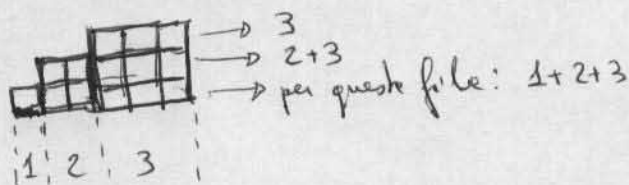 3
2+3
per queste file: 1+2+3
1 2 3